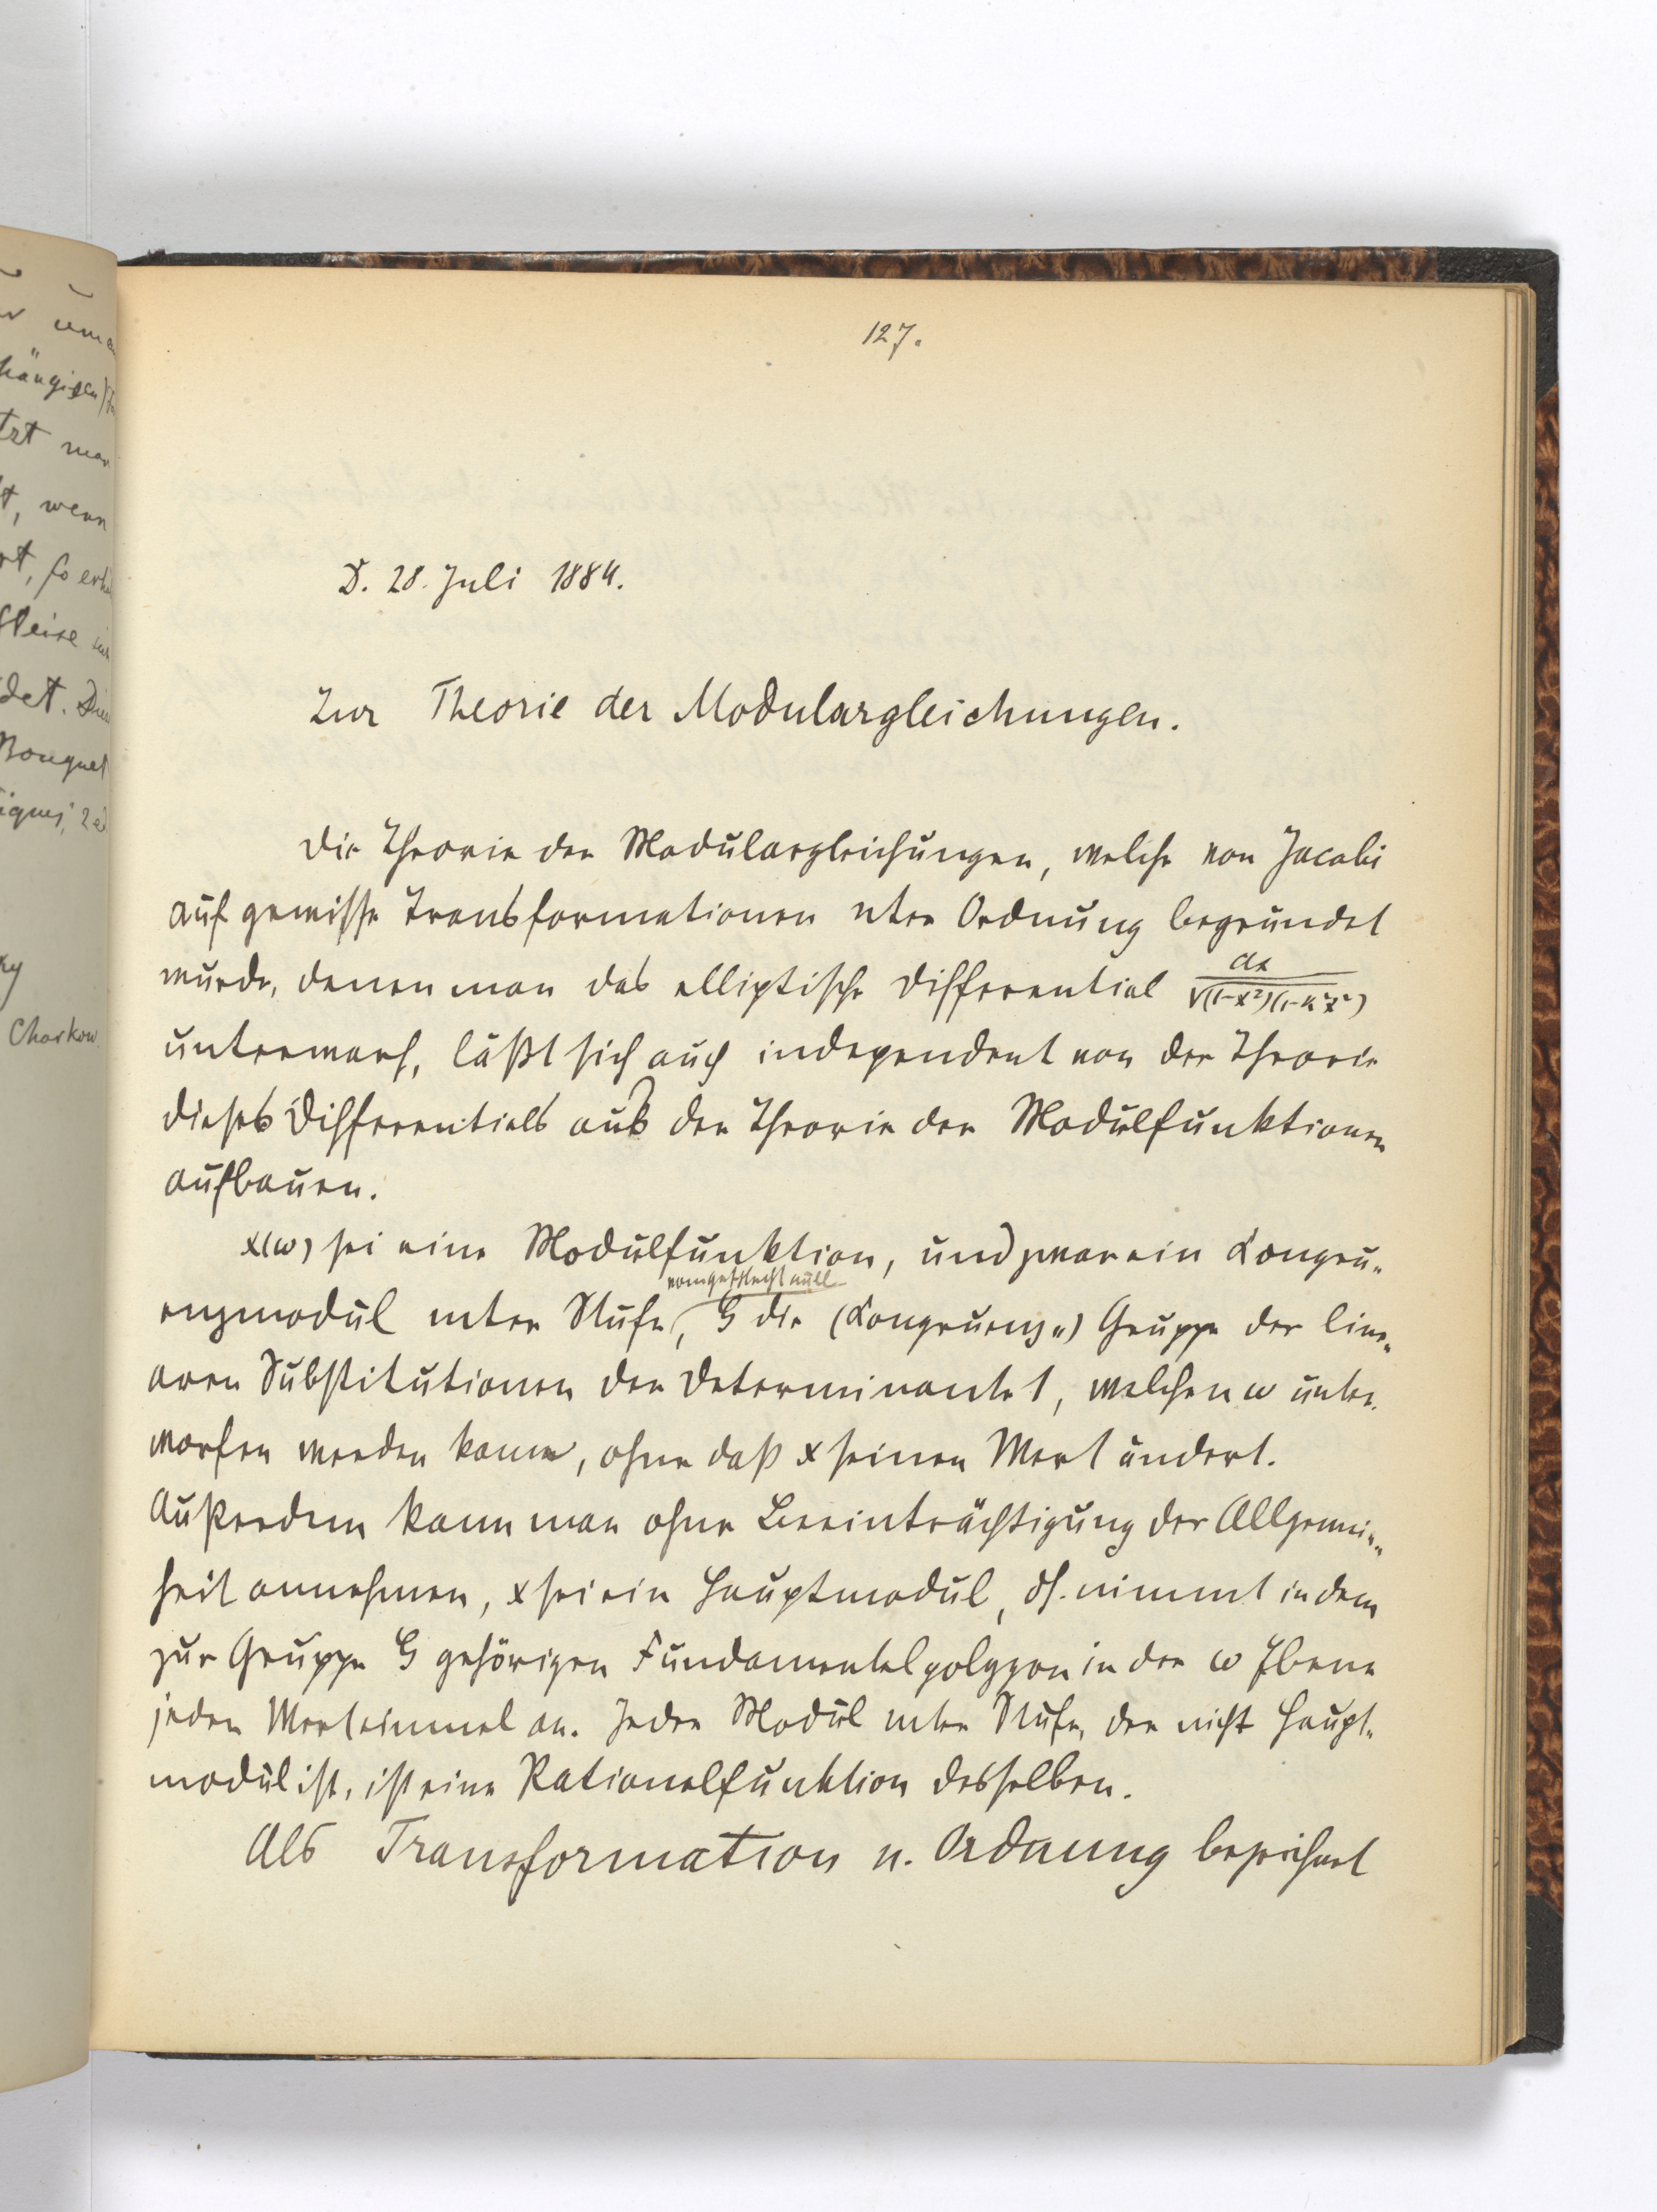 127.
D. 28. Juli 1884.
Zur Theorie der Modulargleichungen.
Die Theorie der Modulargleichungen, welche von Jacobi
auf gewisse Transformationen nter Ordnung begründet
wurde, denen man das elliptische Differential dx/√(1-x²)(1-k²x²)
unterwarf, läßt sich auch independent von der Theorie
dieses Differentials aus der Theorie der Modulfunktionen
aufbauen.
x(ω) sei eine Modulfunktion, und zwar ein Kongru„
vom Geschlecht null
enzmodul mter Stufe, G die (Kongruenz„) Gruppe der line„
aren Substitutionen der Determinante 1, welchen ω unter„
worfen werden kann, ohne daß x seinen Wert ändert.
Außerdem kann man ohne Beeinträchtigung der Allgemein„
heit annehmen, x sei ein Hauptmodul, dh. nimmt in dem
zur Gruppe G gehörigen Fundamentalpolygon in der ω Ebene
jeden Wert einmal an. Jeder Modul mter Stufe, der nicht Haupt„
modul ist, ist eine Rationalfunktion desselben.
Als Transformation n. Ordnung bezeichnet
hängigen
wenn
so
det.
Bouquet
Charkow